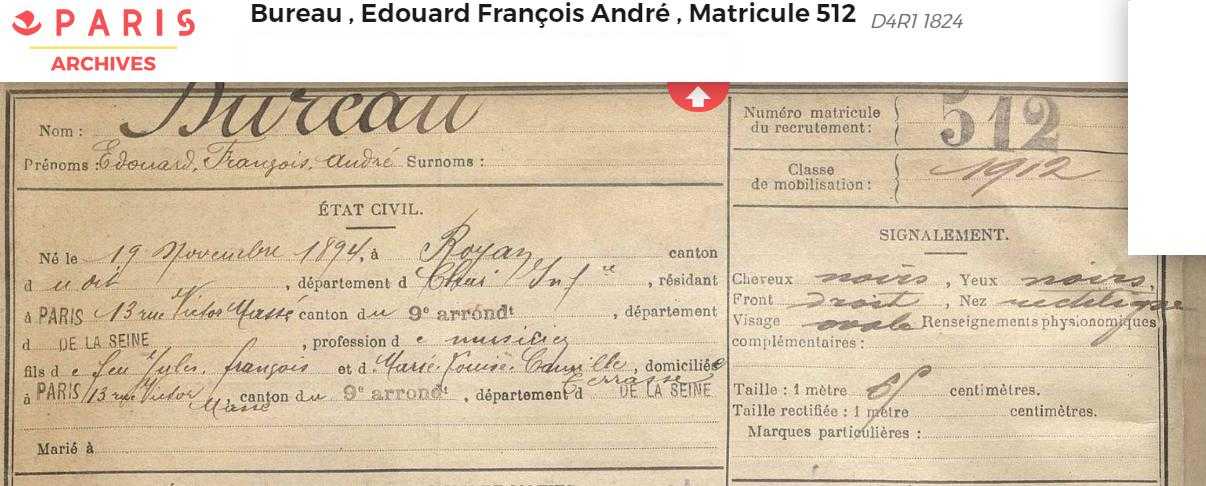 PARIS
ARCHIVES
Bureau , Edouard François André , Matricule 512 D4R1 1824
Nom : Bureau
Prénoms : Edouard, François, André Surnoms :
ÉTAT CIVIL.
Né le 19 Novembre 1894, à Royan canton
d u dit , département d Char Infre , résidant
à PARIS 13 rue Victor Massé canton du 9e arrondt , département
d DE LA SEINE , profession d e musicien
fils d e feu Jules, françois et d Marie Louise Camille Terrasse , domiciliés
à PARIS 13 rue Victor Massé , canton du 9e arrondt , département d DE LA SEINE
Marié à
Numéro matricule du recrutement : 512
Classe de mobilisation : 1912
SIGNALEMENT.
Cheveux noirs , Yeux noirs,
Front droit , Nez rectiligne
Visage ovale Renseignements physionomiques
complémentaires :
Taille : 1 mètre 65 centimètres.
Taille rectifiée : 1 mètre centimètres.
Marques particulières :